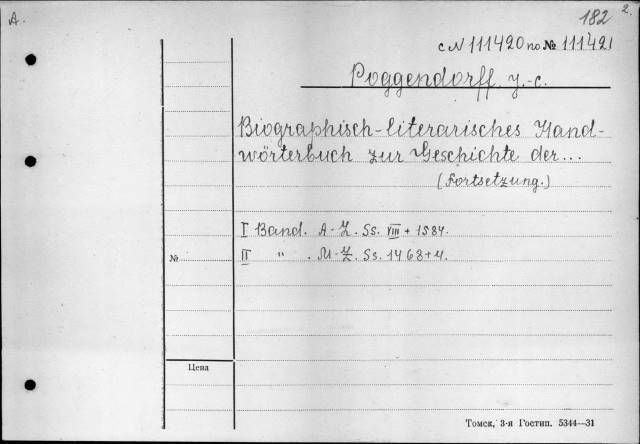 A.
182
2.
с N 111420 по № 111421
Poggendorff J.-C.
Biographisch-literarisches Hand-
wörterbuch zur Geschichte der...
(Fortsetzung.)
I Band. A-Z. Ss. VIII + 1584.
№ II " . M-Z. Ss. 1468+4.
Цена
Томск, 3-я Гостип. 5344—31